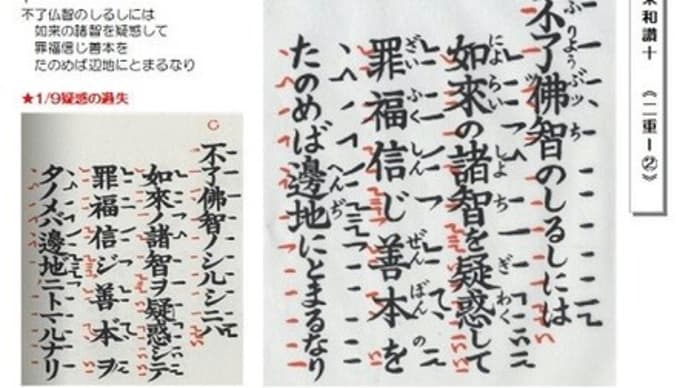 不了仏智のしるしには
如来の諸智を疑惑して
罪福信じ善本を
たのめば辺地にとまるなり
★1/9疑惑の過失
不了佛智ノシルシニハ
如來ノ諸智ヲ疑惑シテ
罪福信ジ善本ヲ
タノメバ邊地ニトマルナリ
和讃十 《二重ー②》
ふりようぶッち
不了佛智のしるしには
によらい しよち ぎわく
如來の諸智を疑惑して
ざいふくしん ぜんぽんの
罪福信じ善本を
へんぢ
たのめば邊地にとまるなり